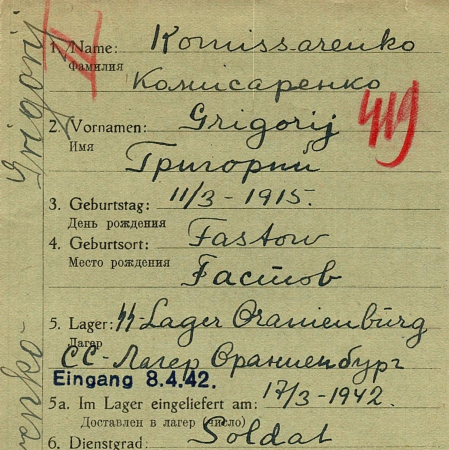 1. Name: Komissarenko
Фамилия Комисаренко
2. Vornamen: Grigorij
Имя
Григорий
419
3. Geburtstag: 11/3 - 1915.
День рождения
4. Geburtsort: Fastow
Место рождения
Fастов
5. Lager: SS-Lager Oranienburg
Лагер
СС-Лагер Ораниенбург
Eingang 8.4.42.
5a. Im Lager eingeliefert am: 17/3 - 1942.
Доставлен в лагер (число)
6. Dienstgrad: Soldat
Grigorij
enko-